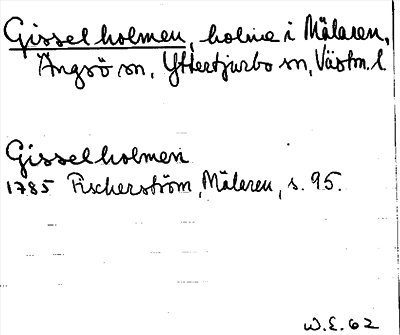 Gisselholmen, holme i Mälaren,
Ängsö sn, Yttertjurbo sn, Västm. l.
Gisselholmen
1785 Fischerström, Mälaren, s. 95.
W.E. 62